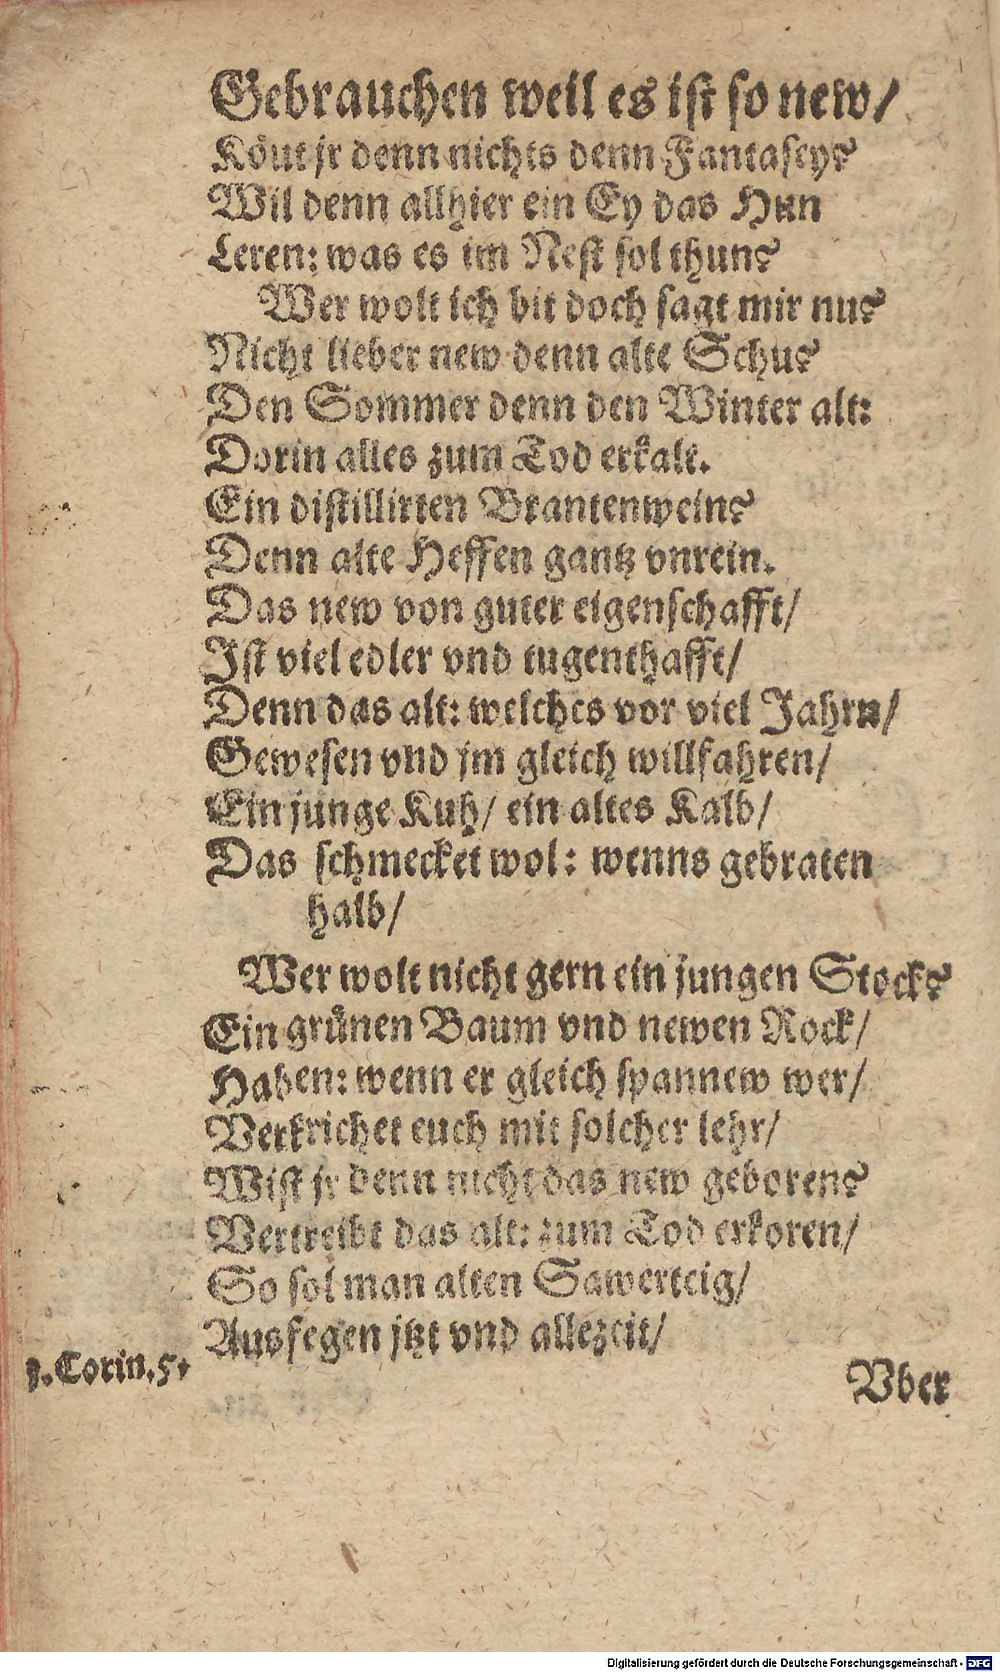 Gebrauchen weil es ist so new/
Köut jr denn nichts denn Fantasey?
Wil denn allhier ein Ey das Hun
Leren: was es im Nest sol thun?
Wer wolt ich bit doch sagt mir nu?
Nicht lieber new denn alte Schu?
Den Sommer denn den Winter alt:
Dorin alles zum Tod erkalt.
Ein distillirten Brantenwein?
Denn alte Heffen gantz vnrein.
Das new von guter eigenschafft/
Ist viel edler vnd tugenthafft/
Denn das alt: welches vor viel Jahrn/
Gewesen vnd jm gleich willfahren/
Ein junge Kuh/ ein altes Kalb/
Das schmecket wol: wenns gebraten
halb/
Wer wolt nicht gern ein jungen Stock?
Ein grünen Baum vnd newen Rock/
Haben: wenn er gleich spannew wer/
Verkrichet euch mit solcher lehr/
Wist jr denn nicht das new geboren?
Vertreibt das alt: zum Tod erkoren/
So sol man alten Sawerteig/
Ausfegen jtzt vnd allezeit/
1. Corin. 5.
Vber
Digitalisierung gefördert durch die Deutsche Forschungsgemeinschaft - DFG